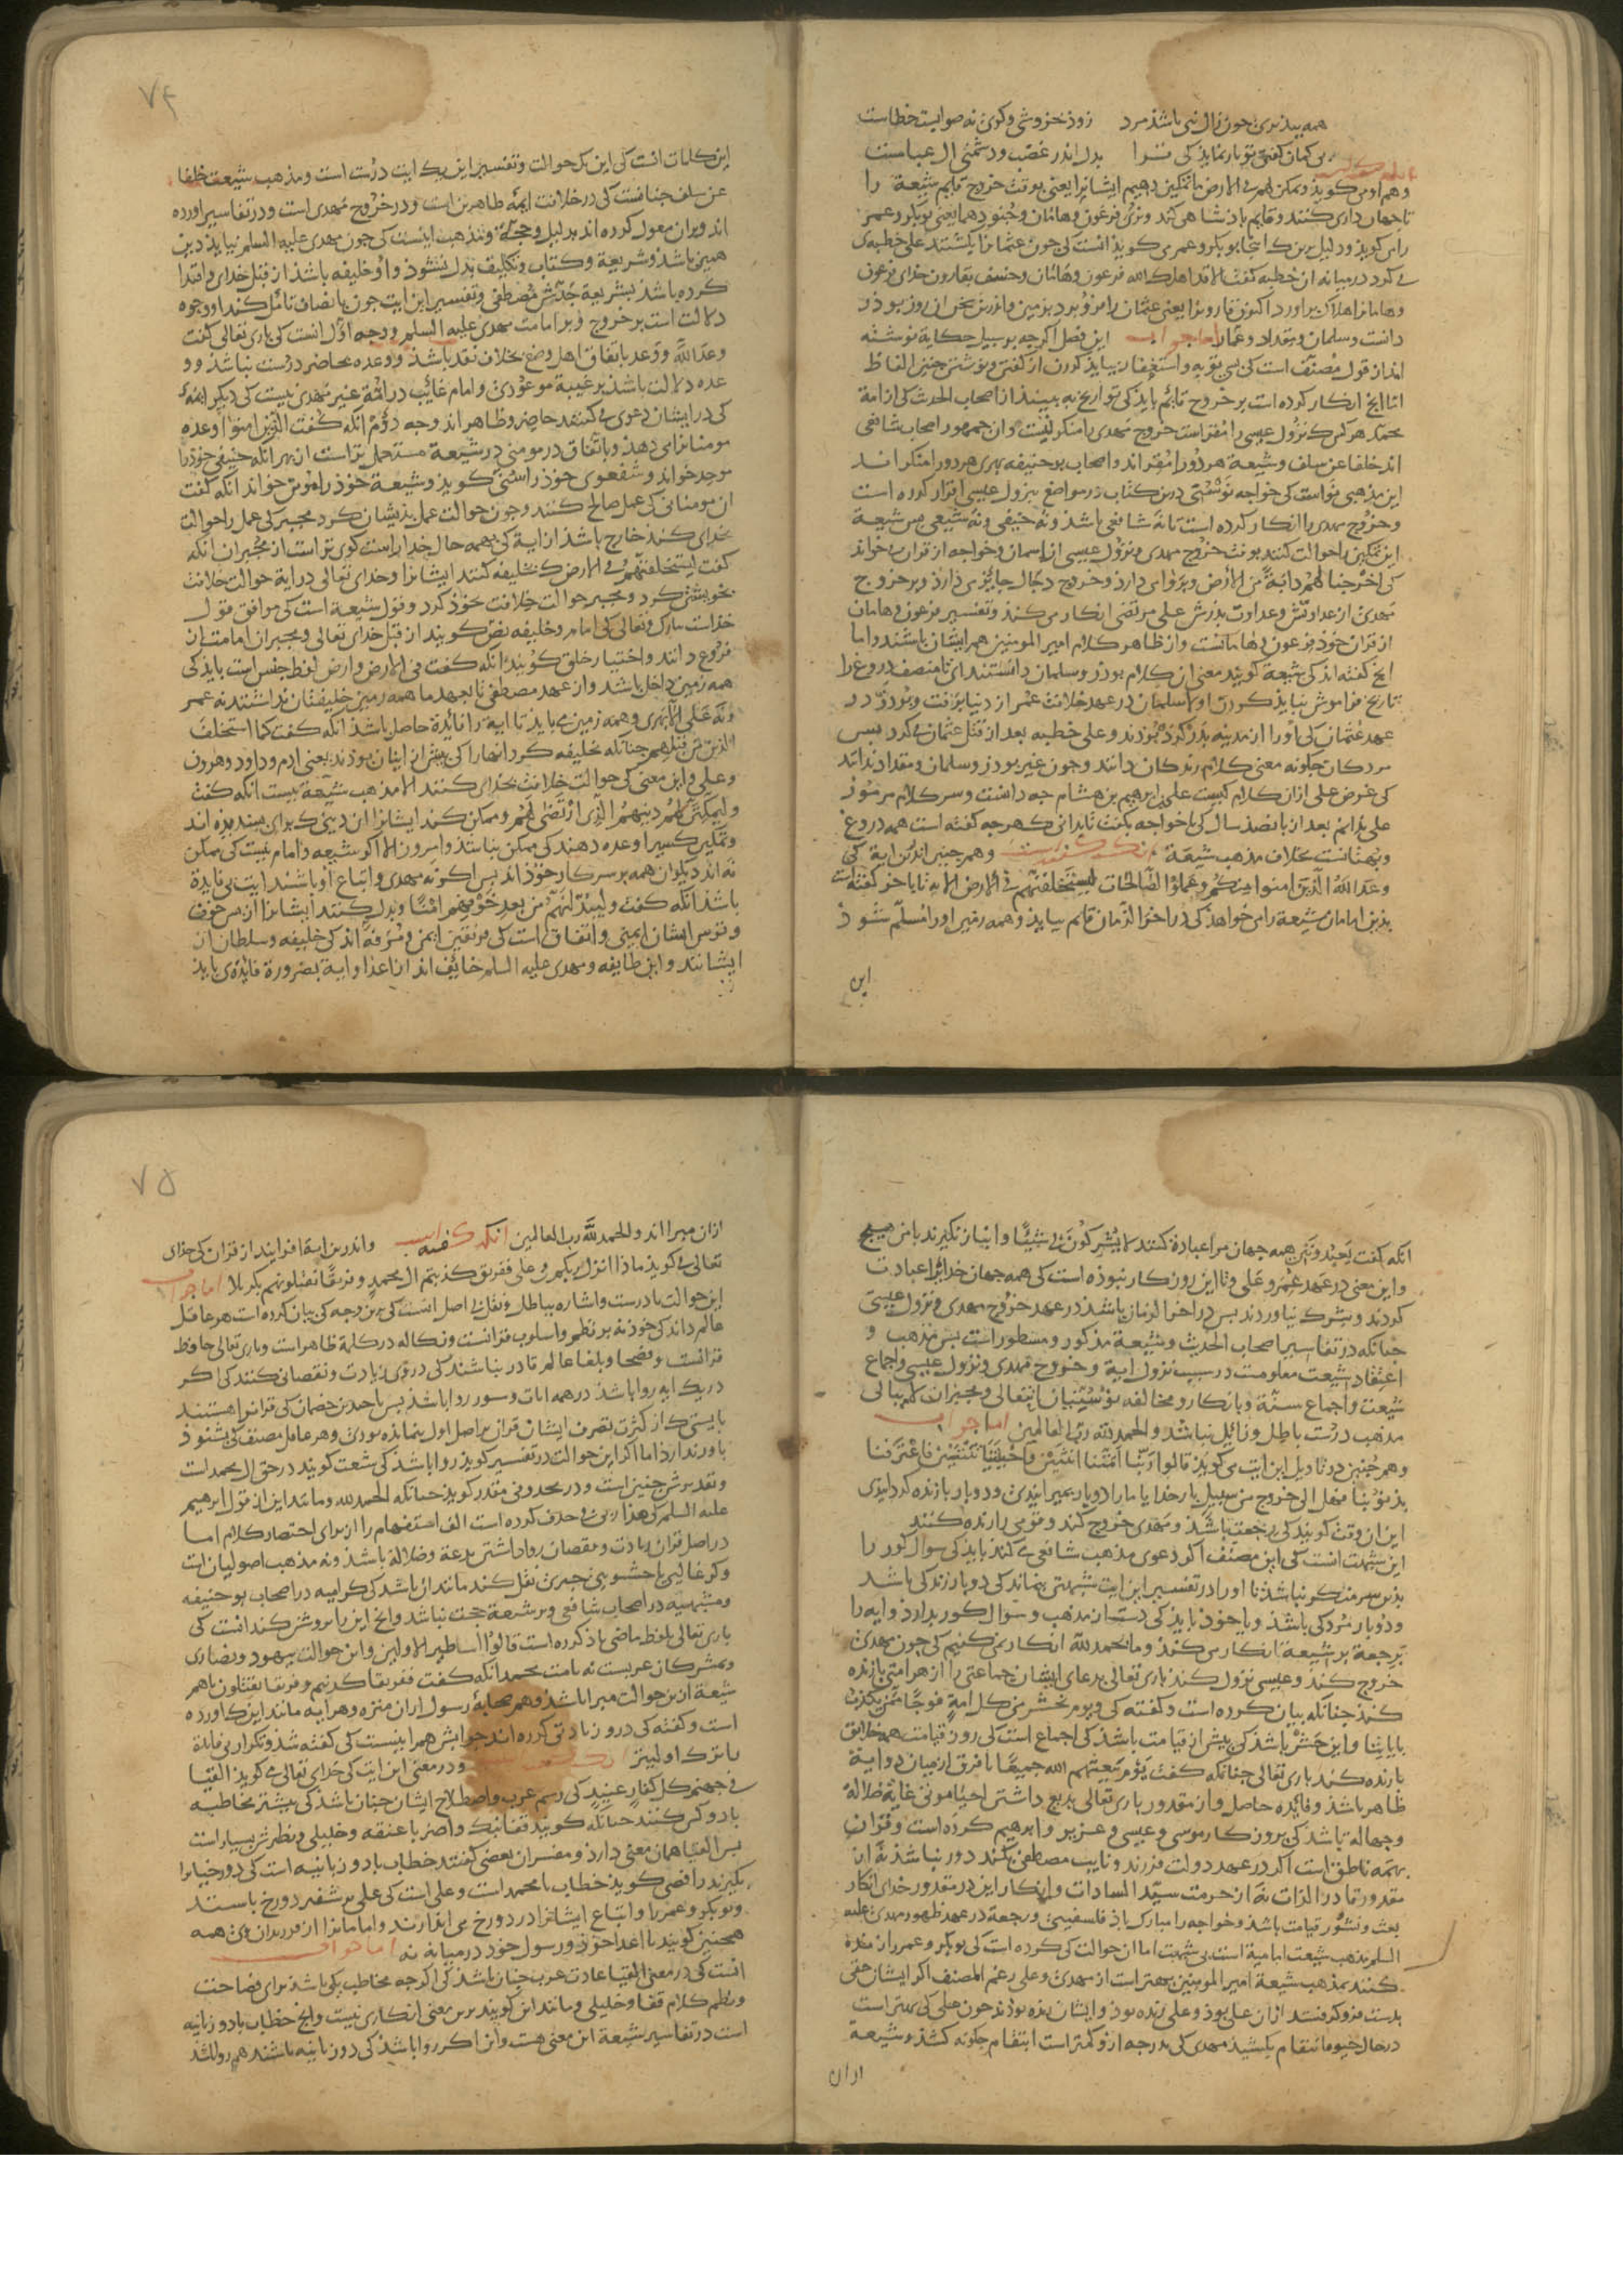 همه بپذیری چون زال نبی باشذ مرد زوذ خروشی و کوی نه صوابست خطاست
بی کمان کفتی تو باز نمایذ کی ترا بدل اندر غضب و دشمنی ال عباست
وهم اوی کویذ ونمکن لهم فی الارض تا تمکین دهیم ایشانرا یعنی بوقت خروج قایم شیعة را
تا جهان داری کنند و قایم باذشاهی کند ونری فرعون وهامان وجنودهما یعنی بوبکر و عمر
را می کویذ و دلیل برین ک اینجا بوبکر و عمر می کویذ انست کی چون عثمانرا بکشتند علی خطبه‌ی
می کرد در میانه ان خطبه کفت الا قد اهلک الله فرعون وهامان وخسف بقارون خدای فرعون
وهامانرا هلاک براورد اکنون قارونرا یعنی عثمان را فرو برد بزمین واندرین سخن ان روز بوذر
دانست و سلمان و مقداد و عمار اما جواب این فصل اکرچه بر سبیل حکایة نوشته
اند از قول مصنف است کی بی توبه و استغفار نبایذ کوردن از کفتن و نوشتن چنین الفاظ
اما انچ انکار کرده است بر خروج قائم بایذ کی تواریخ به بینند از اصحاب الحدیث کی از امة
محمد هر کس ک نزول عیسی را مقراست خروج مهدی را منکر نیست وان جمهور اصحاب شافعی
اند خلفا عن سلف و شیعة هر دو را مقراند و اصحاب بوحنیفه بهری هر دو را منکراند
این مذهبی نواست کی خواجه نوسنی درین کتاب در مواضع بنزول عیسی اقرار کرده است
و خروج مهدی را انکار کرده است تا نه شافعی باشذ ونه حنیفی ونه شیعی پس شیعة
این تمکین را حوالت کنند بوقت خروج مهدی و نزول عیسی از اسمان و خواجه از قران می خواند
کی اخرجنا لهم دابة من الارض و بروای دارذ و خروج دجال جایز می دارذ و بر خروج
مهدی از عداوتش و عداوت پذرش علی مرتضی انکار می کند و تفسیر فرعون و هامان
از قران خوذ فرعون و هامانست واز ظاهر کلام امیر المومنین هم ایشان باشند و اما
انچ کفته اند کی شیعة کویند معنی ان کلام بوذر و سلمان دانستند ای نامنصف دروغ را
تاریخ فراموش نبایذ کوردن اولا سلمان در عهد خلافت عمر از دنیا برفت و بوذر در
عهد عثمان کی او را از مدینه بدر کرده بوذند و علی خطبه بعد از قتل عثمان می کرد پس
مردکان چکونه معنی کلام زندکان دانند و چون غیر بوذر و سلمان و مقداد ندانند
کی غرض علی ازان کلام کیست علی بن ابرهیم بن هشام چه دانست و سر کلام مرموز
علی بدانم بعد از پانصذ سال کی با خواجه بکفت تا بدانی ک هر چه کفته است همه دروغ
و بهتانست بخلاف مذهب شیعة انکه کفته است وهم چنین اندر ان ایة کی
وعد الله الذین امنوا منکم وعملوا الصالحات لیستخلفنهم فی الارض الایه تا باخر کفته است
بذین امامان شیعة را می خواهذ کی در اخر الزمان قایم بیایذ و همه زمین او را مسلم شوذ
این
۷۴
این کلمات انست کی این یک حوالت و تفسیر این یک ایت درست است و مذهب شیعت خلفا
عن سلف چنانست کی در خلافت ایمة طاهرین است و در خروج مهدی است و در تفاسیر اورده
اند و بران معول کرده اند بدلیل و حجة و مذهب اینست کی چون مهدی علیه السلم بیایذ دین
همین باشذ و شریعة و کتاب و تکلیف بدل نشوذ و او خلیفه باشذ از قبل خدای و اقتدا
کرده باشذ بشریعة جدش مصطفی و تفسیر این ایت چون بانصاف تامل کند از وجوه
دلالت است بر خروج و بر امامت مهدی علیه السلم وجه اول انست کی باری تعالی کفت
وعد الله و وعد باتفاق اهل وضع بخلاف نقد باشذ و وعده بحاضر درست نباشذ و و
عده دلالت باشذ بر غیبة موعودی و امام غایب در ائمة غیر مهدی نیست کی دیکر ایمة
کی در ایشان دعوی می کنند حاضر و ظاهراند وجه دوم انکه کفت الذین امنوا وعده
مومنانرا می دهذ و باتفاق در مومنی در شیعة مستعمل تراست از بهر انکه حنیفی خوذ را
موحد خواند و شفعوی خوذ را سنی کویذ و شیعة خوذ را مومن خواند انکه کفت
ان مومنانی کی عمل صالح کنند و چون حوالت عمل بذیشان کرد مجبر کی عمل را حوالت
بخدای کند خارج باشذ از ایة کی بهمه حال خدا راست کوی تراست از مجبران انکه
کفت لیستخلفنهم فی الارض ک خلیفه کنند ایشانرا و خدای تعالی در ایة حوالت خلافت
بخویشتن کرد و مجبر حوالت خلافت بخوذ کرد و قول شیعة است کی موافق قول
خداست تبارک و تعالی کی امام و خلیفه نص کویند از قبل خدای تعالی و مجبران امامت از
فروع دانند و اختیار خلق کویند انکه کفت فی الارض و ارض لفظ جنس است بایذ کی
همه زمین داخل باشد و از عهد مصطفی تا بعهد ما همه زمین خلیفتان نداشتند نه عمر
ونه علی الا بهری و همه زمین می بایذ تا ایة را فایدة حاصل باشذ انکه کفت کما استخلف
الذین من قبلهم چنانکه خلیفه کرد انها را کی پیش از ایشان بوذند یعنی ادم و داود و هرون
و علی و این معنی کی حوالت خلافت بخدای کنند الا مذهب شیعة نیست انکه کفت
ولیمکنن لهم دینهم الذی ارتضی لهم و ممکن کند ایشانرا ان دینی ک برای پسندیده اند
و تمکین کسیرا وعده دهند کی ممکن نباشذ و امروز الا اکر شیعه و امام نیست کی ممکن
نه اند دیکران همه بر سر کار خوذ اند پس اکر نه مهدی و اتباع او باشند ایت بی فایدة
باشذ انکه کفت ولیبدلنهم من بعد خوفهم امنا و بدل کنند ایشانرا از پس خوف
و ترس ایشان ایمنی و اتفاق است کی فریقین ایمن و مرفه اند کی خلیفه و سلطان از
ایشانند و این طایفه و مهدی علیه السلم خائف اند از اعدا و ایة بضرورة فایده‌ی بایذ
انکه کفت یعبدوننی همه جهان مرا عبادة کنند لایشرکون بی شیئا و انباز نکیرند با من هیچ
و این معنی در عهد عمر و علی و تا این روزکار نبوذه است کی همه جهان خدایرا عبادت
کردند و شرک نیاوردند پس در اخر الزمان باشذ در عهد خروج مهدی و نزول عیسی
چنانکه در تفاسیر اصحاب الحدیث و شیعة مذکور و مسطور است پس مذهب و
اعتقاد شیعت معلومست در سبب نزول ایة و خروج مهدی و نزول عیسی و اجماع
شیعت و اجماع سنة و بانکار و مخالفه نوسنیان انتقالی و مجبران لاابالی
مذهب درست باطل و زائل نباشد والحمد لله رب العالمین اما جواب
وهم چنین در تاویل این ایت می کویذ قالوا ربنا امتنا اثنتین واحییتنا اثنتین فاعترفنا
بذنوبنا فهل الی خروج من سبیل بار خدایا ما را دو بار بمیرانیدی و دو بار بازنده کردانیدی
این ان وقت کویند کی رجعت باشذ و مهدی خروج کند و قومی را زنده کنند
این شبهت انست کی این مصنف اکر دعوی مذهب شافعی می کند بایذ کی سوال کور را
بدین سر منکر نباشذ تا او را در تفسیر این ایت شبهتی بنماند کی دو بار زندکی باشد
و دو بار مردکی باشذ و یا خوذ بایذ کی دست از مذهب و سوال کور بدارذ و ایه را
برجعة بر شیعة انکار می کند و ما بحمد لله انکار نمی کنیم کی چون مهدی
خروج کند و عیسی نزول کند باری تعالی بدعای ایشان جماعتی را از هر امتی بازنده
کند چنانکه بیان کرده است و کفته کی ویوم نحشر من کل امة فوجا ممن یکذب
بایاتنا و این حشر باشذ کی پیش از قیامت باشذ کی اجماع است کی روز قیامت همه خلایق
بازنده کند باری تعالی چنانکه کفت یوم یبعثهم الله جمیعا تا فرق از میان دو ایة
ظاهر باشذ و فایده حاصل و از مقدور باری تعالی بدیع داشتن احیاء موتی غایة ضلالة
و جهالة باشذ کی بروزکار موسی و عیسی و عزیر و ابرهیم کرده است و قران
بهمه ناطق است اکر در عهد دولت فرزند و نایب مصطفی بکند دور نباشذ نه از
مقدور قادر الذات نه از حرمت سید السادات و انکار این در مقدور خدای انکار
بعث و نشور قیامت باشذ و خواجه را مبارک باذ فلسفیی و رجعة در عهد ظهور مهدی علیه
السلم مذهب شیعت امامیه است بی شبهت اما ان حوالت کی کرده است کی بوبکر و عمر را زنده
کنند بمذهب شیعة امیر المومنین بهتر است از مهدی و علی رغم المصنف اکر ایشان حقی
بدست فرو کرفتند ازان علی بوذ و علی زنده بوذ و ایشان زنده بوذند چون علی کی بهتر است
در حال حیوة انتقام نکشید مهدی کی بدرجه ازو کمتر است انتقام چکونه کشد و شیعة
ازان
۷۵
ازان مبرا اند والحمد لله رب العالمین انکه کفته است و اندرین ایة افزایند از قران کی خدای
تعالی می کویذ ماذا انزل ربکم و علی ففریق کذبتم ال محمد و فریقا تقتلونهم بکربلا اما جواب
این حوالت نادرست و اشاره بباطل و نقل بی اصل انست کی برین وجه کی بیان کرده است هر عاقل
عالم داند کی خوذ نه بر نظم و اسلوب قرانست و نکاله در کلمة ظاهر است و باری تعالی حافظ
قرانست و فصحا و بلغا عالم قادر نباشند کی دروی زیادت و نقصانی کنند کی اکر
در یک ایه روا باشذ در همه ایات و سور روا باشذ پس با چندین خصمان کی قرانرا هستند
بایستی ک از کثرت تصرف ایشان قران بر اصل اول بنمانده بودی و هر عاقل مصنف کی بشنوذ
باور ندارذ اما اکر این حوالت در تفسیر کویذ روا باشذ کی شیعت کویند در حق ال محمد است
و تقدیرش چنین است و در محذوفی مقدر کویذ چنانکه الحمد لله و مانند این از قول ابرهیم
علیه السلم کی هذا ربی و حذف کرده است الف استفهام را از برای اختصار کلام اما
در اصل قران زیادت و نقصان روا داشتن بدعة و ضلالة باشذ و نه مذهب اصولیان است
و کر غالیی یا حشویی خبری نقل کند مانند ان باشد کی کرامیه در اصحاب بوحنیفه
و مشبهیه در اصحاب شافعی و بر شیعة حجت نباشد و انچ این را بروشن کند انست کی
باری تعالی بلفظ ماضی یاذ کرده است قالوا اساطیر الاولین و این حوالت بیهود و نصاری
و مشرکان عربست نه بامت محمد انکه کفت ففریقا کذبتم و فریقا تقتلون هم
شیعة ازین حوالت مبرا باشذ و هم صحابة رسول ازان منزه و هر ایه مانند این ک اورده
است و کفته کی درو زیادتی کرده اند جوابش هم اینست کی کفته شد و تکرار بی فایدة
را ترک اولیتر انکه کفته است و در معنی این ایت کی خدای تعالی می کویذ القیا
فی جهنم کل کفار عنید کی رسم عرب و اصطلاح ایشان چنان باشذ کی بیشتر مخاطبه
با دو کس کنند چنانکه کویند قفا نبک و اضربا عنقه و خلیلی و نظیرش بسیار است
پس القیا همان معنی دارذ و مفسران بعضی کفتند خطاب با دو زبانیه است کی دوزخیانرا
بکیرند رافضی کویذ خطاب با محمد است و علی است کی علی بر شفیر دوزخ باستد
و بوبکر و عمر را و اتباع ایشانرا در دوزخ می اندازند و امامانرا از فرزندان علی همه
همچنین کویند با اعداء خوذ و رسول خود در میانه نه اما جواب
انست کی در معنی القیا عادت عرب چنان باشذ کی اکرچه مخاطب یکی باشذ برای فصاحت
و نظم کلام قفا و خلیلی و مانند این کویند برین معنی انکاری نیست و انچ خطاب با دو زبانیه
است در تفاسیر شیعة این معنی هست و این اکر روا باشذ کی دو زبانیه باشند هم روا باشذ